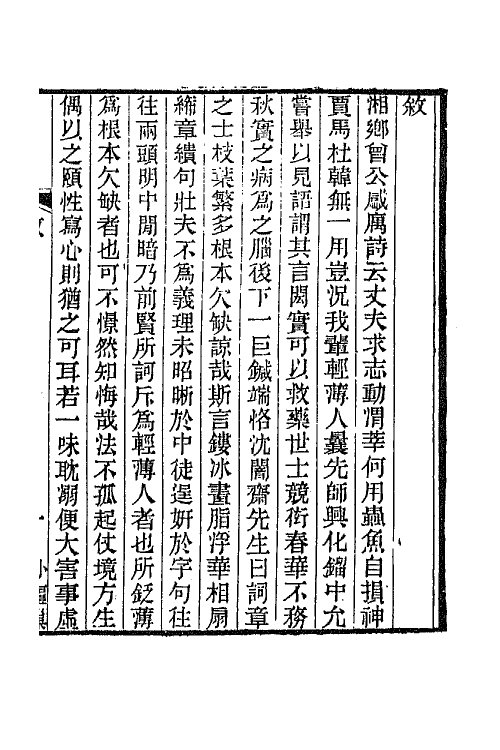 敘
湘鄉曾公感寓詩云丈夫求志動渭莘何用蟲魚自損神
賈馬杜韓無一用豈況我輩輕薄人曩先師興化鎦中允
嘗舉以見語謂其言閎實可以救藥世士競銜春華不務
秋實之病爲之腦後下一巨鍼端恪沈闇齋先生曰詞章
之士枝葉繁多根本欠缺諒哉斯言鏤冰畫脂浮華相扇
絺章繢句壯夫不爲義理未昭晰於中徒逞妍於字句往
往兩頭明中閒暗乃前賢所訶斥爲輕薄人者也所鈘薄
爲根本欠缺者也可不憬然知悔哉法不孤起仗境方生
偶以之頤性寫心則猶之可耳若一味耽溺便大害事虛